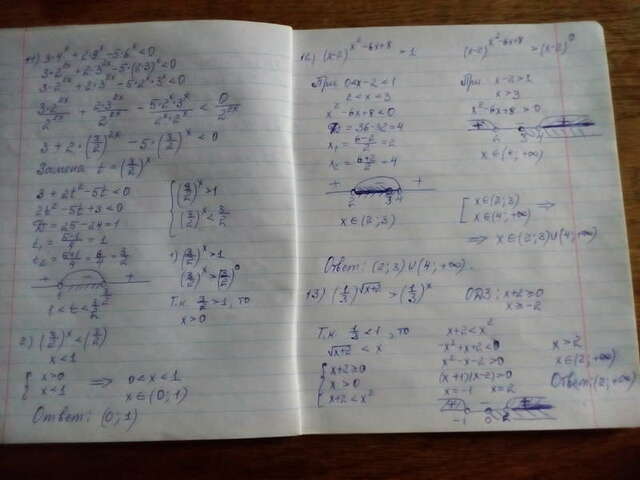 11) 3·4^x + 2·9^x - 5·6^x < 0
3·2^{2x} + 2·3^{2x} - 5·(2·3)^x < 0
3·2^{2x} + 2·3^{2x} - 5·2^x·3^x < 0
3·2^{2x}/2^{2x} + 2·3^{2x}/2^{2x} - 5·2^x·3^x/2^x·2^x < 0/2^{2x}
3 + 2·(3/2)^{2x} - 5·(3/2)^x < 0
Замена t = (3/2)^x
3 + 2t² - 5t < 0
2t² - 5t + 3 < 0
D = 25 - 24 = 1
t₁ = 5-1/4 = 1
t₂ = 5+1/4 = 6/4 = 3/2
1 3/2
1 < t < 3/2
{ (3/2)^x > 1
(3/2)^x < 3/2
1) (3/2)^x > 1
(3/2)^x > (3/2)^0
Т.к. 3/2 > 1, то
x > 0
2) (3/2)^x < (3/2)
x < 1
{ x > 0
x < 1 ⇒ 0 < x < 1
x ∈ (0; 1)
Ответ: (0; 1)
12) (x-2)^{x²-6x+8} > 1
При 0 < x-2 < 1
2 < x < 3
x² - 6x + 8 < 0
D = 36 - 32 = 4
x₁ = 6-2/2 = 2
x₂ = 6+2/2 = 4
+ - +
2 3 4
x ∈ (2; 3)
(x-2)^{x²-6x+8} > (x-2)^0
При x-2 > 1
x > 3
x² - 6x + 8 > 0
+ - +
2 3 4
x ∈ (4; +∞)
[ x ∈ (2; 3)
x ∈ (4; +∞) ⇒
⇒ x ∈ (2; 3) ∪ (4; +∞)
Ответ: (2; 3) ∪ (4; +∞).
13) (1/3)^{√x+2} > (1/3)^x
ОДЗ: x+2 ≥ 0
x ≥ -2
Т.к. 1/3 < 1, то
√x+2 < x
{ x+2 ≥ 0
x > 0
x+2 < x²
x+2 < x²
-x²+x+2 < 0
x²-x-2 > 0
(x+1)(x-2) > 0
x = -1 x = 2
+ - +
-1 0 2
x > 2
x ∈ (2; +∞)
Ответ: (2; +∞)